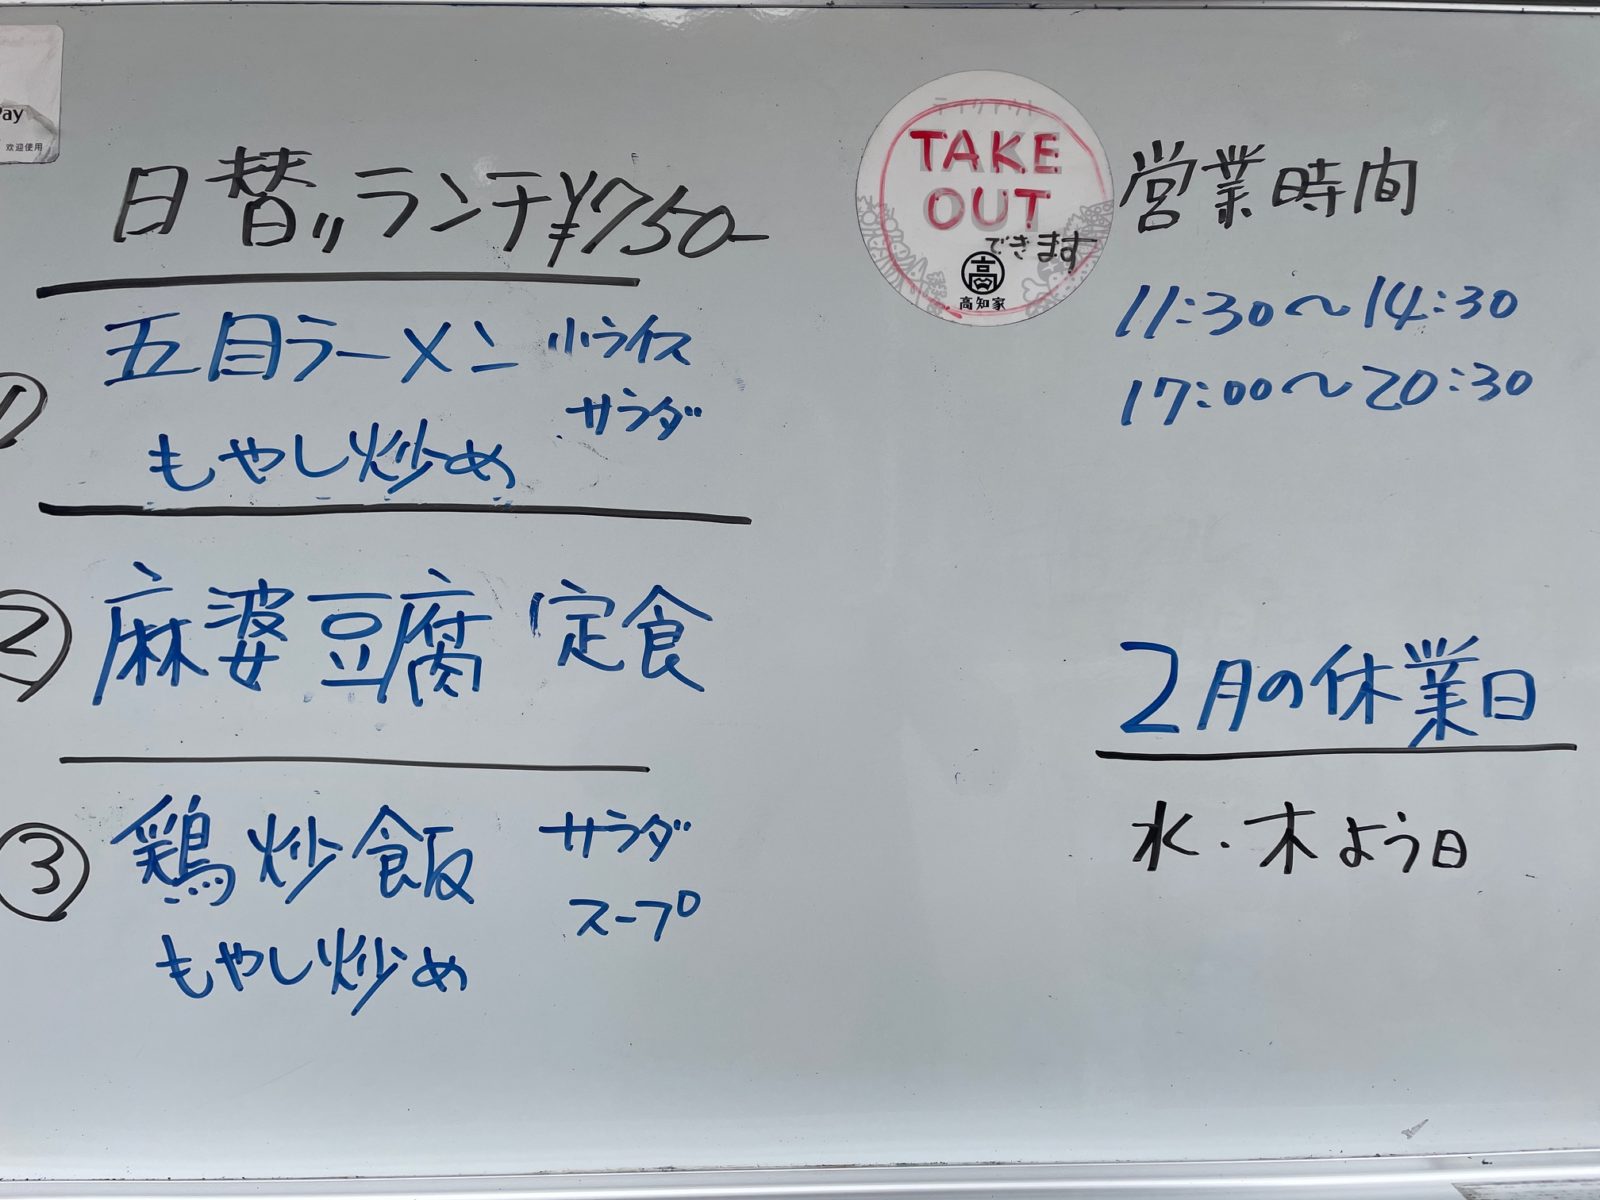 Pay
欢迎使用
日替りランチ¥750-
① 五目ラーメン 小ライス
サラダ
もやし炒め
② 麻婆豆腐 定食
③ 鶏炒飯 サラダ
スープ
もやし炒め
テイクアウト
TAKE
OUT
できます
高
高知家
営業時間
11:30〜14:30
17:00〜20:30
2月の休業日
水・木よう日